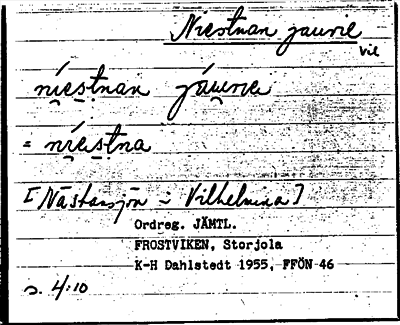 Niestnan jaurie
Vil
níestnan jáurie
= níestna
[Nästansjön i Vilhelmina]
Ordreg. JÄMTL.
FROSTVIKEN, Storjola
K-H Dahlstedt 1955, FFÖN 46
s. 4:10